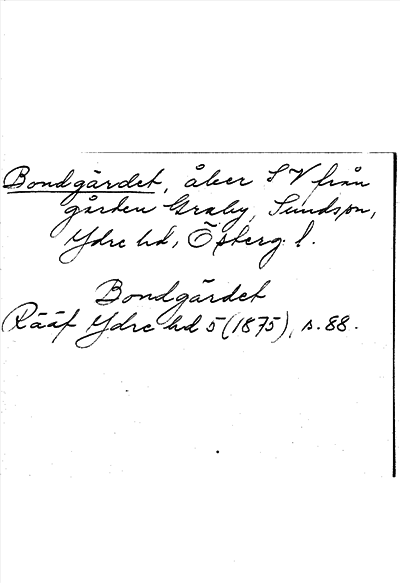 Bondgärdet, åker SV från
gården Graby, Sunds sn,
Ydre hd, Österg. l.
Bondgärdet
Rääf Ydre hd 5 (1875), s. 88.